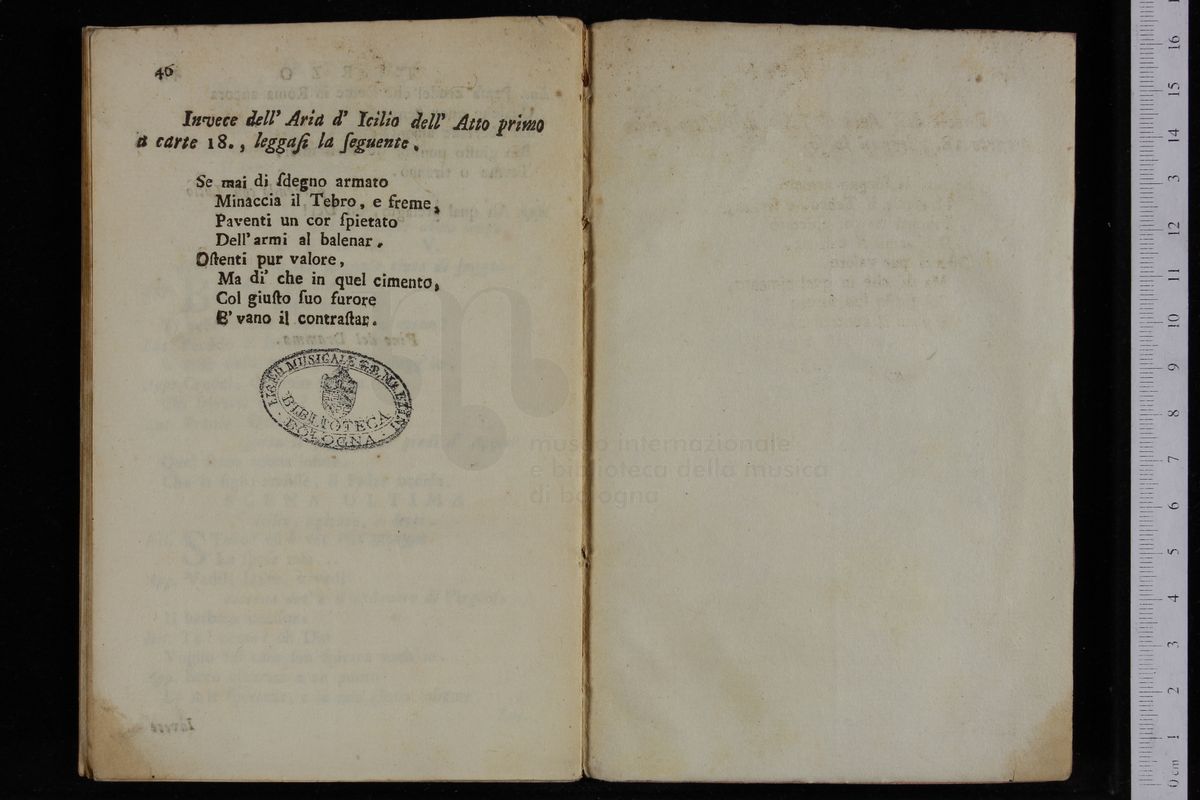 40
Invece dell' Aria d' Icilio dell' Atto primo
a carte 18., leggasi la seguente.
Se mai di sdegno armato
Minaccia il Tebro, e freme,
Paventi un cor spietato
Dell' armi al balenar.
Ostenti pur valore,
Ma di' che in quel cimento,
Col giusto suo furore
E' vano il contrastar.
LICEO MUSICALE G.B. MARTINI
BIBLIOTECA
BOLOGNA
museo internazionale
e biblioteca della musica
di bologna
0 cm 1 2 3 4 5 6 7 8 9 10 11 12 13 14 15 16